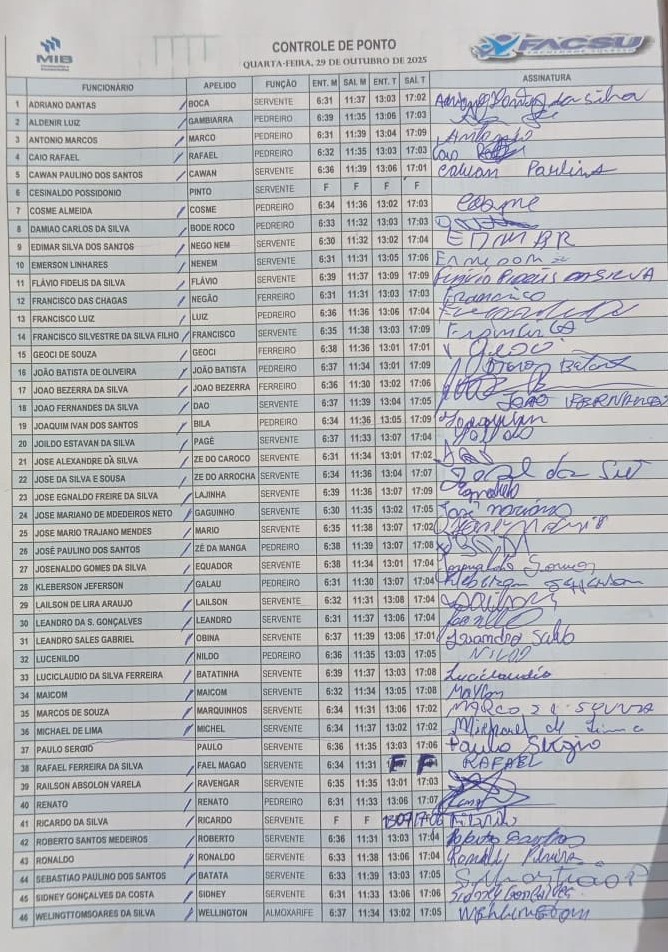 MIB
CONTROLE DE PONTO
QUARTA-FEIRA, 29 DE OUTUBRO DE 2025
FACSU
FUNCIONÁRIO APELIDO FUNÇÃO ENT. M SAI. M ENT. T SAI. T ASSINATURA
1 ADRIANO DANTAS BOCA SERVENTE 6:31 11:37 13:03 17:02 Adriano Dantas da silva
2 ALDENIR LUIZ GAMBIARRA PEDREIRO 6:39 11:35 13:06 17:03
3 ANTONIO MARCOS MARCO PEDREIRO 6:31 11:39 13:04 17:09 Antonio
4 CAIO RAFAEL RAFAEL PEDREIRO 6:32 11:35 13:03 17:03 Caio
5 CAWAN PAULINO DOS SANTOS CAWAN SERVENTE 6:36 11:39 13:06 17:01 Cawan Paulino
6 CESINALDO POSSIDONIO PINTO SERVENTE F F F F
7 COSME ALMEIDA COSME PEDREIRO 6:34 11:36 13:02 17:03 Cosme
8 DAMIAO CARLOS DA SILVA BODE ROCO PEDREIRO 6:33 11:32 13:03 17:03
9 EDIMAR SILVA DOS SANTOS NEGO NEM SERVENTE 6:30 11:32 13:02 17:04 EDIMAR
10 EMERSON LINHARES NENEM SERVENTE 6:31 11:31 13:05 17:06 Emerson
11 FLÁVIO FIDELIS DA SILVA FLÁVIO SERVENTE 6:39 11:37 13:09 17:09 DA SILVA
12 FRANCISCO DAS CHAGAS NEGÃO FERREIRO 6:31 11:31 13:03 17:03 Francisco
13 FRANCISCO LUIZ LUIZ PEDREIRO 6:36 11:36 13:06 17:04
14 FRANCISCO SILVESTRE DA SILVA FILHO FRANCISCO SERVENTE 6:35 11:38 13:03 17:09
15 GEOCI DE SOUZA GEOCI FERREIRO 6:38 11:36 13:01 17:01 Geoci
16 JOÃO BATISTA DE OLIVEIRA JOÃO BATISTA PEDREIRO 6:37 11:34 13:01 17:09
17 JOAO BEZERRA DA SILVA JOAO BEZERRA FERREIRO 6:36 11:30 13:02 17:06
18 JOAO FERNANDES DA SILVA DAO SERVENTE 6:37 11:39 13:04 17:05 JOAO FERNANDES
19 JOAQUIM IVAN DOS SANTOS BILA PEDREIRO 6:34 11:36 13:05 17:09 Joaquim
20 JOILDO ESTAVAN DA SILVA PAGÉ SERVENTE 6:37 11:33 13:07 17:04 Joildo
21 JOSE ALEXANDRE DA SILVA ZE DO CAROCO SERVENTE 6:31 11:34 13:01 17:02
22 JOSE DA SILVA E SOUSA ZE DO ARROCHA SERVENTE 6:34 11:36 13:04 17:07
23 JOSE EGNALDO FREIRE DA SILVA LAJINHA SERVENTE 6:39 11:36 13:07 17:09 Egnaldo
24 JOSE MARIANO DE MDEDEIROS NETO GAGUINHO SERVENTE 6:30 11:35 13:02 17:05 José mariano
25 JOSE MARIO TRAJANO MENDES MARIO SERVENTE 6:35 11:38 13:07 17:02
26 JOSÉ PAULINO DOS SANTOS ZÉ DA MANGA PEDREIRO 6:38 11:39 13:07 17:08
27 JOSENALDO GOMES DA SILVA EQUADOR SERVENTE 6:38 11:34 13:01 17:04 Josenaldo Gomes
28 KLEBERSON JEFERSON GALAU PEDREIRO 6:31 11:30 13:07 17:04 Kleberson Jeferson
29 LAILSON DE LIRA ARAUJO LAILSON SERVENTE 6:32 11:31 13:08 17:04
30 LEANDRO DA S. GONÇALVES LEANDRO SERVENTE 6:31 11:37 13:06 17:04
31 LEANDRO SALES GABRIEL OBINA SERVENTE 6:37 11:39 13:06 17:01 Leandro Sales
32 LUCENILDO NILDO PEDREIRO 6:36 11:35 13:03 17:05 NILDO
33 LUCICLAUDIO DA SILVA FERREIRA BATATINHA SERVENTE 6:39 11:37 13:03 17:08 Luciclaudio
34 MAICOM MAICOM SERVENTE 6:32 11:34 13:05 17:08 Maycon
35 MARCOS DE SOUZA MARQUINHOS SERVENTE 6:34 11:31 13:06 17:02
36 MICHAEL DE LIMA MICHEL SERVENTE 6:34 11:37 13:02 17:02 Michael de Lima
37 PAULO SERGIO PAULO SERVENTE 6:36 11:35 13:03 17:06 Paulo Sergio
38 RAFAEL FERREIRA DA SILVA FAEL MAGAO SERVENTE 6:34 11:31 F F RAFAEL
39 RAILSON ABSOLON VARELA RAVENGAR SERVENTE 6:35 11:35 13:01 17:03
40 RENATO RENATO PEDREIRO 6:31 11:33 13:06 17:07
41 RICARDO DA SILVA RICARDO SERVENTE F F 13:07 17:06
42 ROBERTO SANTOS MEDEIROS ROBERTO SERVENTE 6:36 11:31 13:03 17:04 Roberto Santos
43 RONALDO RONALDO SERVENTE 6:33 11:38 13:06 17:04
44 SEBASTIAO PAULINO DOS SANTOS BATATA SERVENTE 6:33 11:39 13:03 17:05
45 SIDNEY GONÇALVES DA COSTA SIDNEY SERVENTE 6:31 11:33 13:06 17:06 Sidney Gonçalves
46 WELINGTTOMSOARES DA SILVA WELLINGTON ALMOXARIFE 6:37 11:34 13:02 17:05